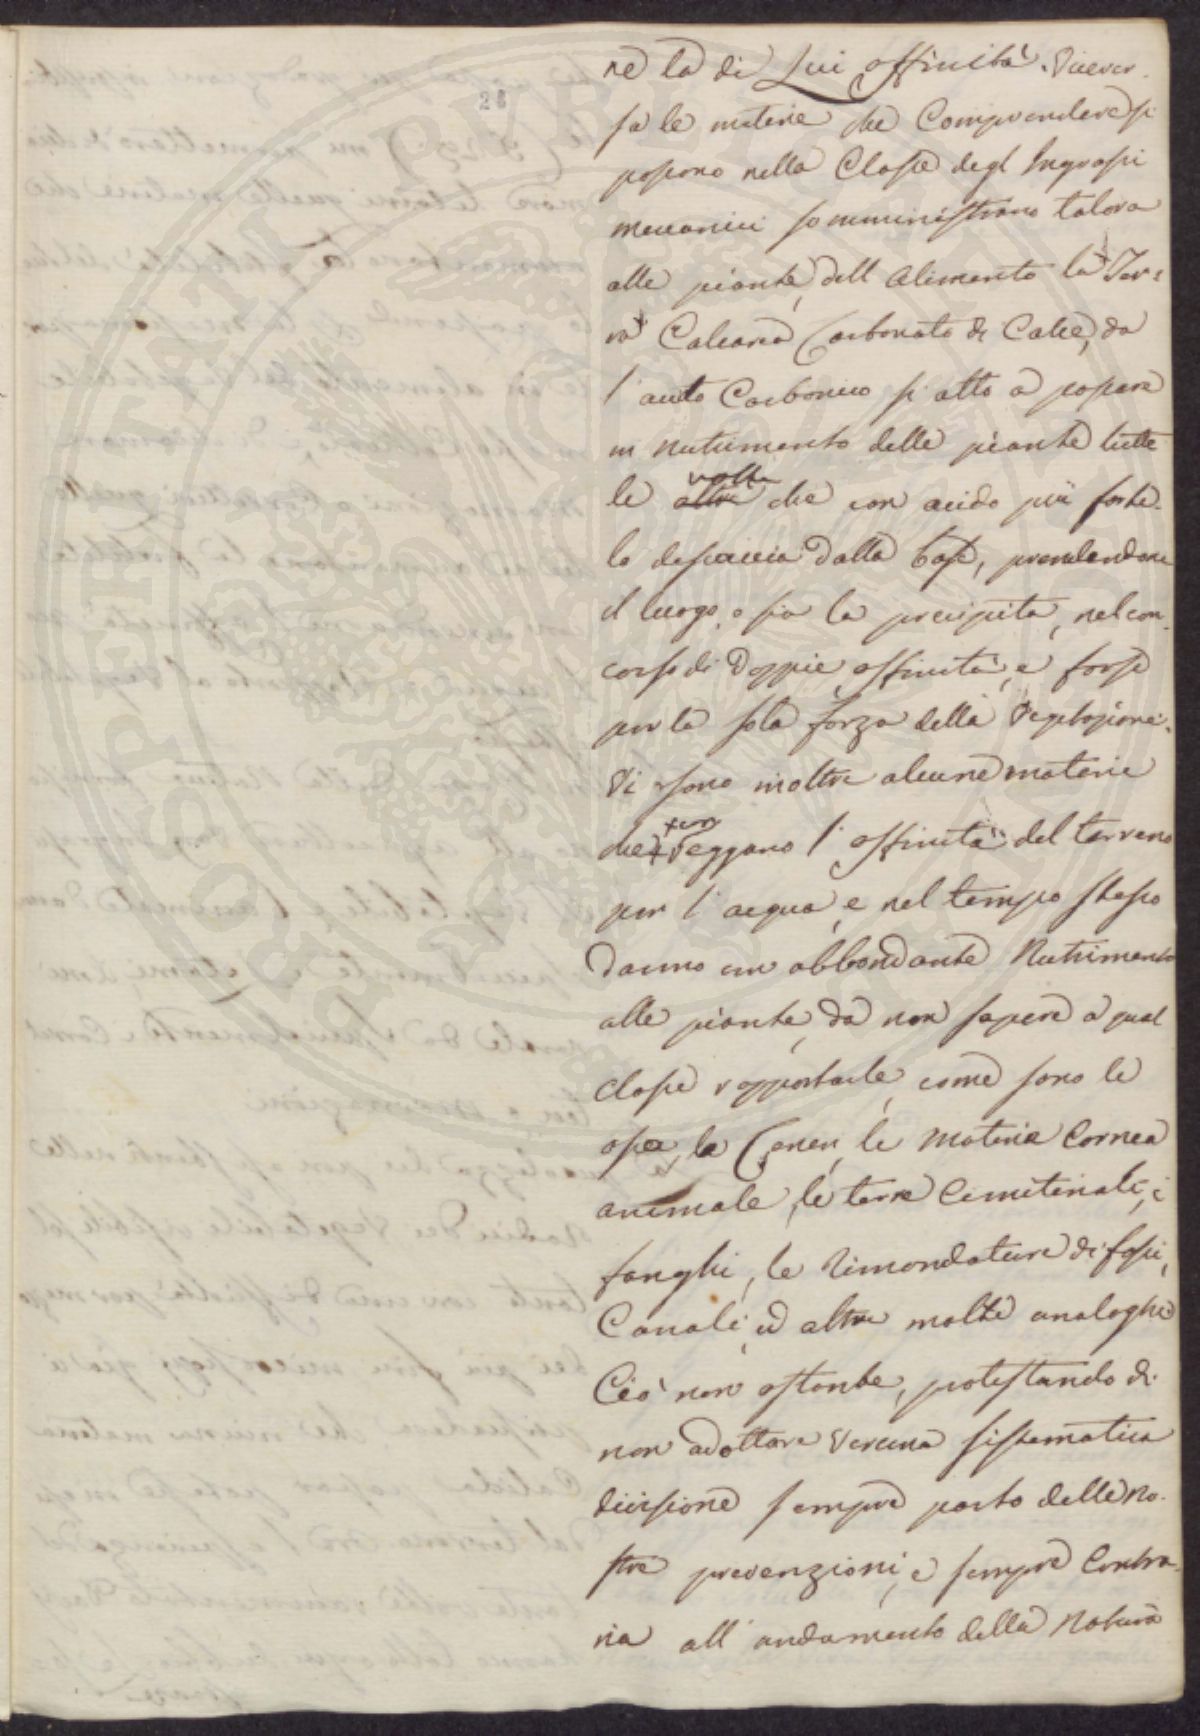 28
ne la di Lui affinità. Vicever-
sa le materie che Comprendere si
possono nella Classe degl' Ingrassi
meccanici somministrano talora
alle piante, dell' alimento la Ter=
ra Calcarea Carbonato di Calce, da
l' acido Carbonico si atto a passare
in nutrimento delle piante tutte
le altre volte che con acido più forte
lo discaccia dalla base, prendendone
il luogo, o sia la precipita, nel con-
corso di doppie affinità, e forse
per la sola forza della Vegetazione.
Vi sono inoltre alcune materie
che correggano l' affinità del terreno
per l' acqua, e nel tempo stesso
danno un abbondante Nutrimento
alle piante, da non sapere a qual
Classe rapportarle, come sono le
ossa, le Ceneri, le materie Cornea
animale, le terre Cimiteriali, i
fanghi, le rimondature di fossi,
Canali, ed altre molte analoghe
Ciò non ostante, protestando di
non adottare veruna sistematica
divisione sempre parto delle no-
stre prevenzioni, e sempre Contra-
ria all' andamento della Natura